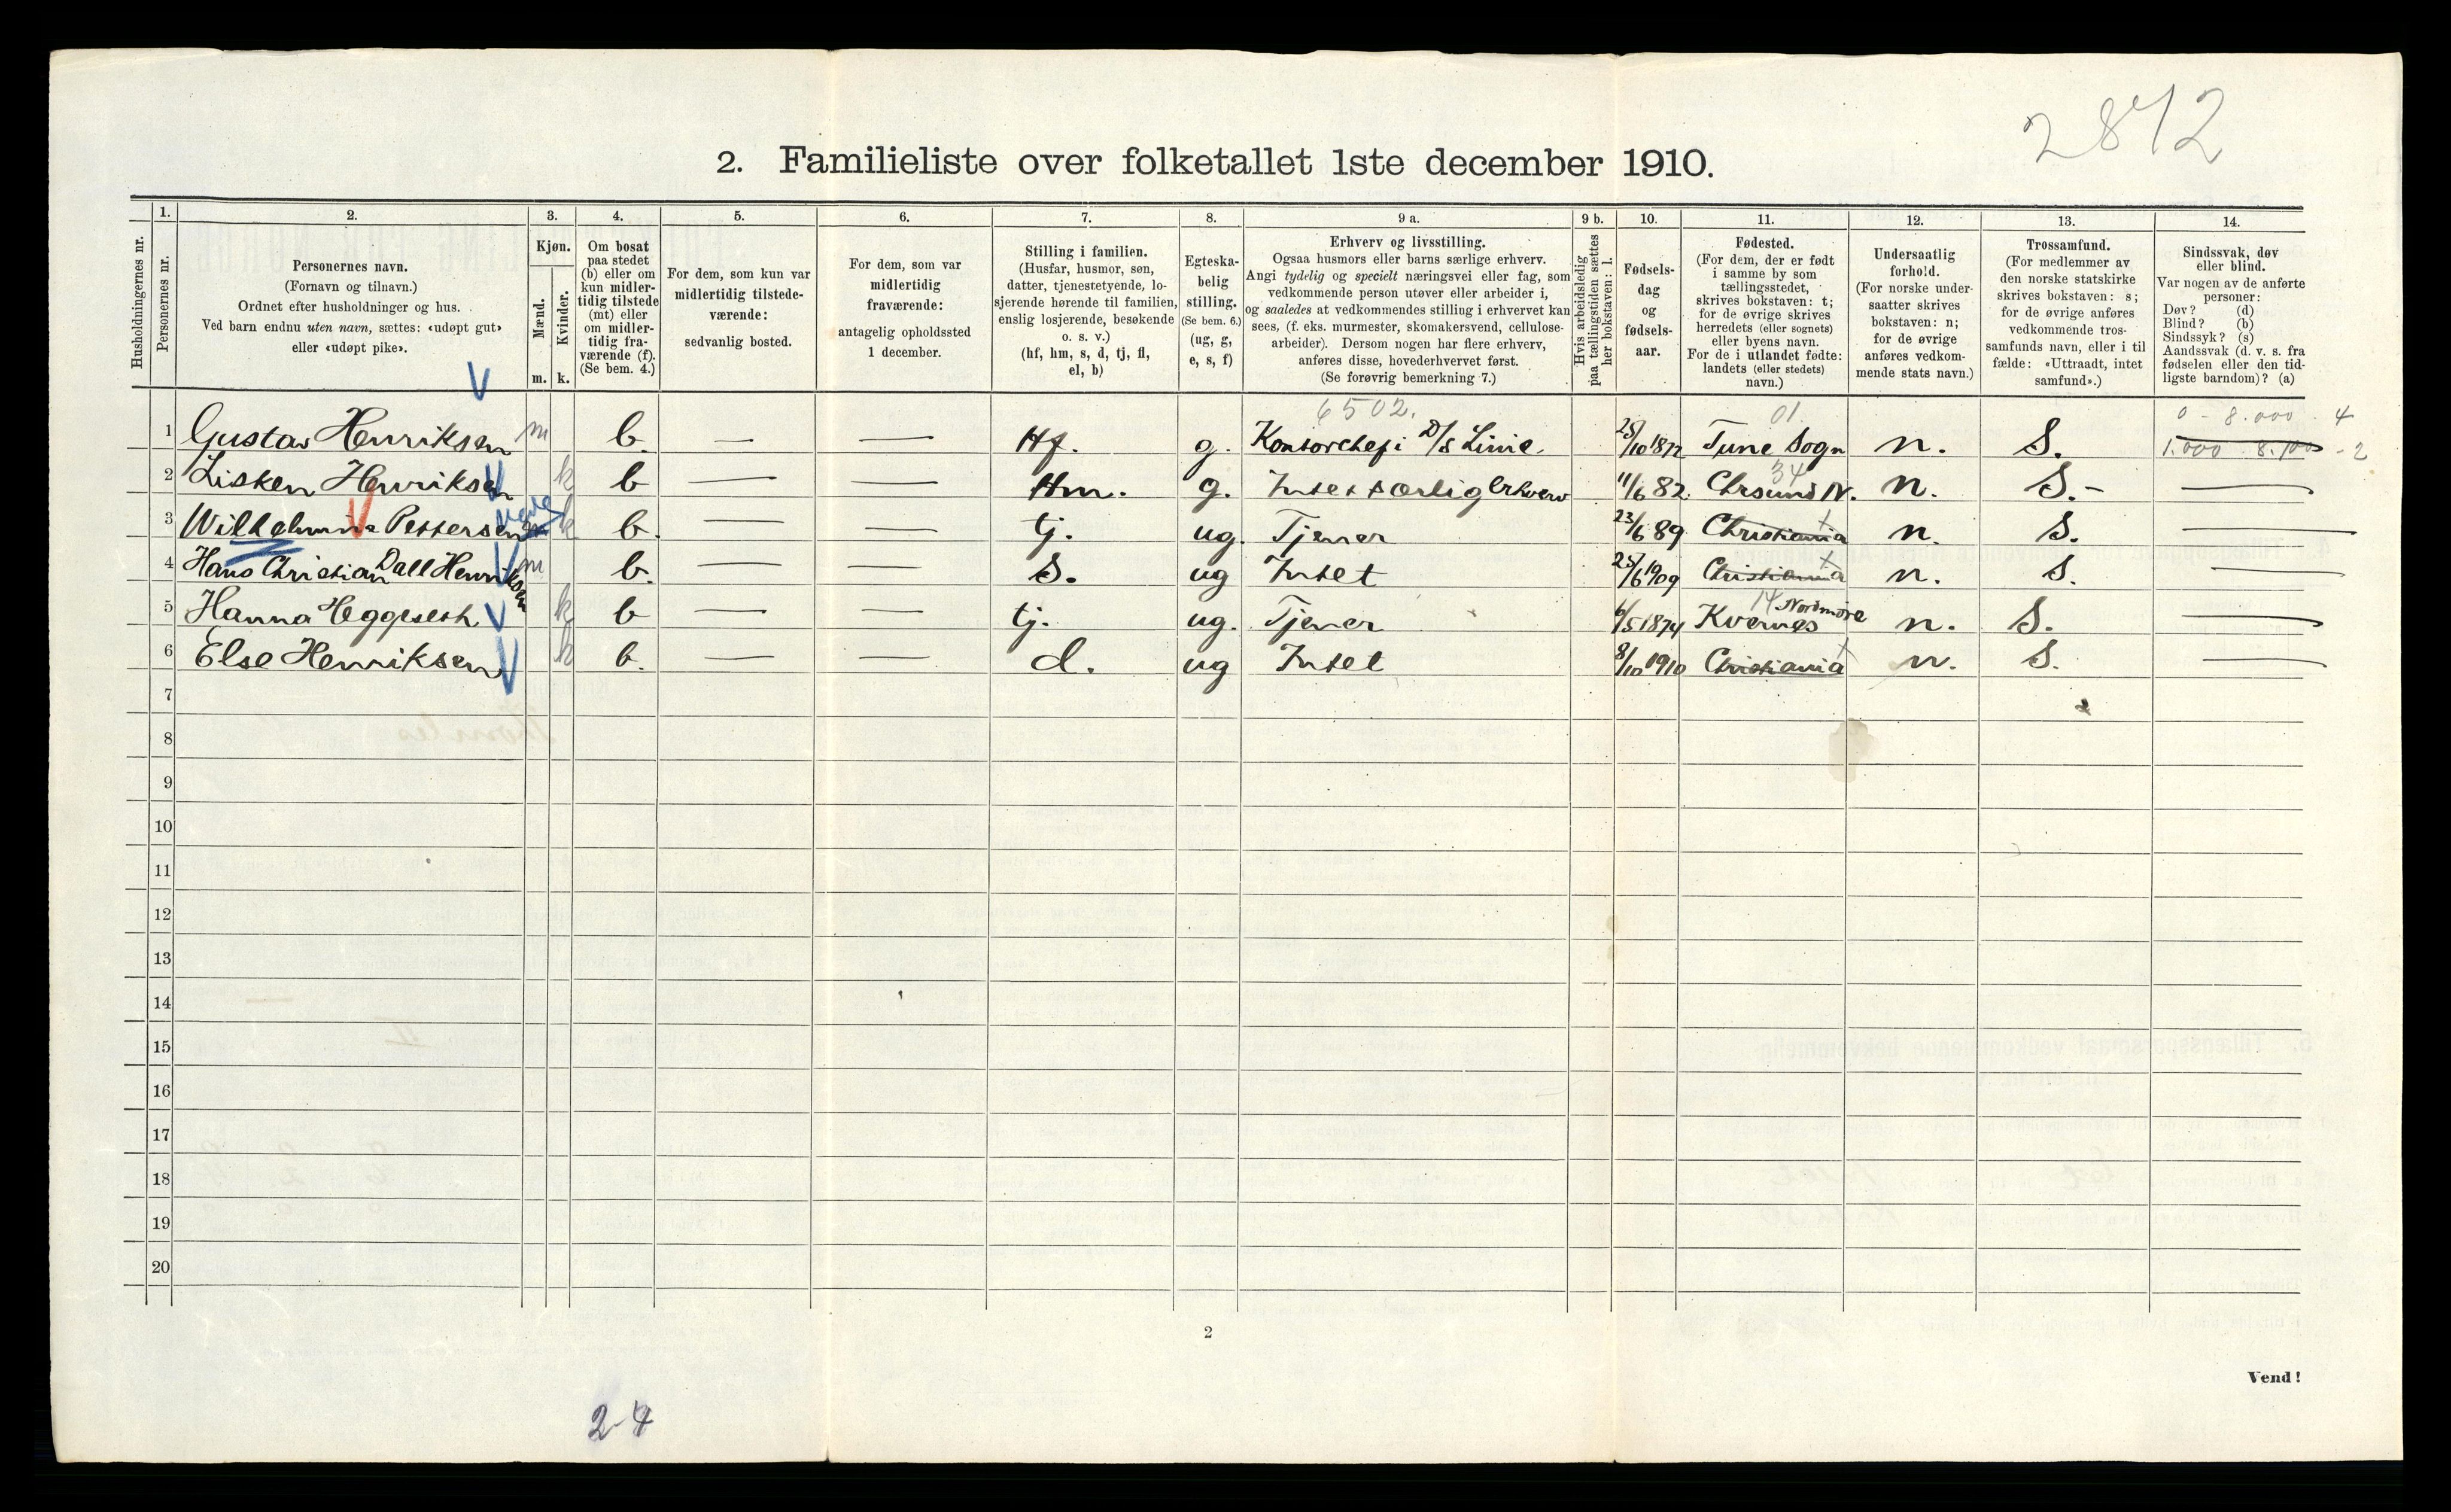 2872
2. Familieliste over folketallet 1ste december 1910.
Husholdningernes nr.
1. Personernes nr.
2. Personernes navn. (Fornavn og tilnavn.) Ordnet efter husholdninger og hus. Ved barn endnu uten navn, sættes: «udøpt gut» eller «udøpt pike».
3. Kjøn. Mænd. m. Kvinder. k.
4. Om bosat paa stedet (b) eller om kun midlertidig tilstede (mt) eller om midlertidig fraværende (f). (Se bem. 4.)
5. For dem, som kun var midlertidig tilstedeværende: sedvanlig bosted.
6. For dem, som var midlertidig fraværende: antagelig opholdssted 1 december.
7. Stilling i familien. (Husfar, husmor, søn, datter, tjenestetyende, losjerende hørende til familien, enslig losjerende, besøkende o. s. v.) (hf, hm, s, d, tj, fl, el, b)
8. Egteskabelig stilling. (Se bem. 6.) (ug, g, e, s, f)
9 a. Erhverv og livsstilling. Ogsaa husmors eller barns særlige erhverv. Angi tydelig og specielt næringsvei eller fag, som vedkommende person utøver eller arbeider i, og saaledes at vedkommendes stilling i erhvervet kan sees, (f. eks. murmester, skomakersvend, cellulosearbeider). Dersom nogen har flere erhverv, anføres disse, hovederhvervet først. (Se forøvrig bemerkning 7.)
9 b. Hvis arbeidsledig paa tællingstiden sættes her bokstaven: l.
10. Fødselsdag og fødselsaar.
11. Fødested. (For dem, der er født i samme by som tællingsstedet, skrives bokstaven: t; for de øvrige skrives herredets (eller sognets) eller byens navn. For de i utlandet fødte: landets (eller stedets) navn.)
12. Undersaatlig forhold. (For norske undersaatter skrives bokstaven: n; for de øvrige anføres vedkommende stats navn.)
13. Trossamfund. (For medlemmer av den norske statskirke skrives bokstaven: s; for de øvrige anføres vedkommende trossamfunds navn, eller i tilfælde: «Uttraadt, intet samfund».)
14. Sindssvak, døv eller blind. Var nogen av de anførte personer: Døv? (d) Blind? (b) Sindssyk? (s) Aandssvak (d. v. s. fra fødselen eller den tidligste barndom)? (a)
6502. 01. 0 - 8.000 . 4
1 Gustav Henriksen m b. — — Hf. g. Kontorchef i D/S Linie. 25/10 1872 Tune Sogn n. S. 1.000 8.100 - 2
34
2 Lisken Henriksen k b — — Hm. g. Intet særlig Erhverv 11/6 82 Chrsund N. n. S. —
3 Wilhelmina Pettersen k b. — — tj. ug. Tjener 23/6 89 Christiania n. S. —
4 Hans Christian Dall Henriksen m b. — — S. ug Intet 25/6 1909 Christiania n. S. —
14 Nordmøre
5 Hanna Heggeseth k b — — tj. ug. Tjener 6/5 1874 Kvernes n. S. —
6 Else Henriksen k b. — — d. ug Intet 8/10 1910 Christiania n. S. —
7
8
9
10
11
12
13
14
15
16
17
18
19
20
2
Vend!
24